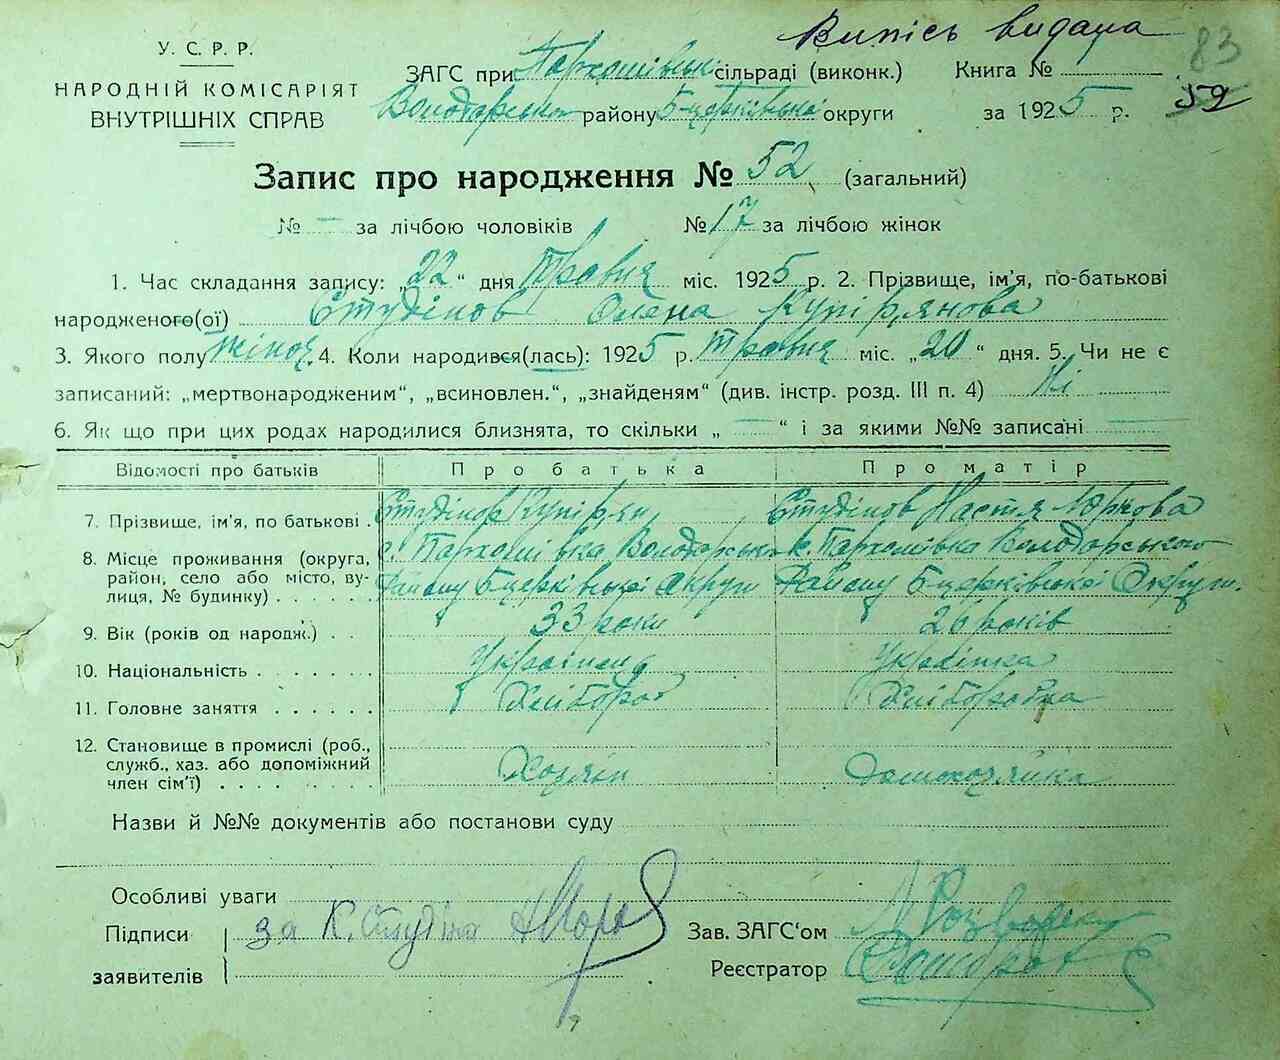 Випісь видана 83
У. С. Р. Р.
НАРОДНІЙ КОМІСАРІЯТ
ВНУТРІШНІХ СПРАВ
ЗАГС при Пархомівськ сільраді (виконк.) Книга №
Володарськ району Бцерківської округи за 1925 р. 59
Запис про народження № 52 (загальний)
№ — за лічбою чоловіків № 17 за лічбою жінок
1. Час складання запису: „22“ дня Травня міс. 1925 р. 2. Прізвище, ім'я, по-батькові
народженого(ої) Студінов Олена Купір'янова
3. Якого полу жіноч. 4. Коли народився(лась): 1925 р. Травня міс. „20“ дня. 5. Чи не є
записаний: „мертвонародженим“, „всиновлен.“, „знайденям“ (див. інстр. розд. III п. 4) Ні
6. Як що при цих родах народилися близнята, то скільки „ — “ і за якими №№ записані —
Відомості про батьків Про батька Про матір
7. Прізвище, ім'я, по батькові . Студінов Купір'ян Студінов Настя Юркова
8. Місце проживання (округа, с. Пархомівка Володарськ с. Пархомівка Володарського
район, село або місто, ву- Району Бцерківської Округи Району Бцерківської Округи.
лиця, № будинку) . . . . .
9. Вік (років од народж.) . . 33 роки 26 років
10. Національність . . . . . . . Українець Українка
11. Головне заняття . . . . . . Хлібороб Хліборобка
12. Становище в промислі (роб.,
служб., хаз. або допоміжний Хозяїн Домохозяйка
член сім'ї) . . . . . . . . .
Назви й №№ документів або постанови суду
Особливі уваги
Підписи за К. Студіна Зав. ЗАГС'ом
заявителів Реєстратор